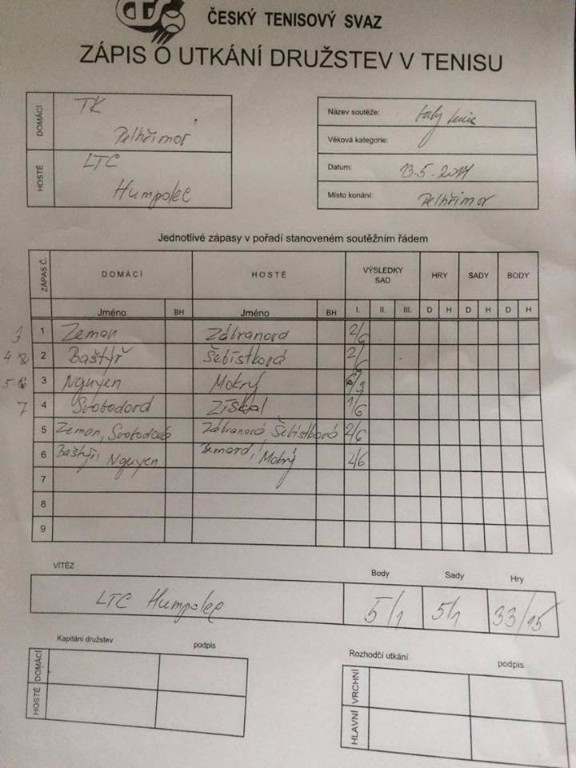 ČESKÝ TENISOVÝ SVAZ
ZÁPIS O UTKÁNÍ DRUŽSTEV V TENISU
DOMÁCÍ TK
Pelhřimov
HOSTÉ LTC
Humpolec
Název soutěže:
Věková kategorie:
Datum: 13.5.
Místo konání: Pelhřimov
Jednotlivé zápasy v pořadí stanoveném soutěžním řádem
ZÁPAS Č. DOMÁCÍ HOSTÉ VÝSLEDKY SAD HRY SADY BODY
Jméno BH Jméno BH I. II. III. D H D H D H
3 1 Zeman Zábranová 2/6
4 2 Baštýř Šebístková 2/6
5 3 Nguyen Mokrý /3
7 4 Svobodová Získal 1/6
5 Zeman, Svobodová Zábranová Šebístková 2/6
6 Baštýř, Nguyen Mokrý
7
8
9
VÍTĚZ Body Sady Hry
LTC Humpolec 5/1 5/1 33/15
Kapitáni družstev podpis
DOMÁCÍ
HOSTÉ
Rozhodčí utkání podpis
VRCHNÍ
HLAVNÍ